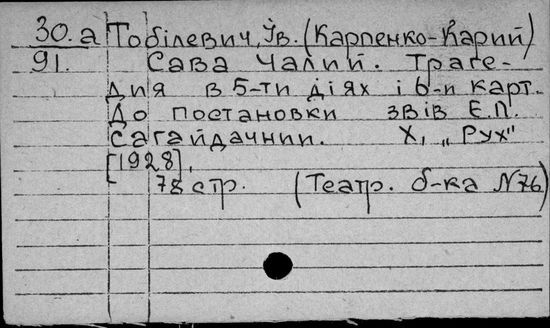 30.a Тобілевич, Ів. (Карпенко-Карий)
91. Сава Чалий. Траге-
дия в 5-ти діях і 6-и карт.
До постановки звів Е.П.
Сагайдачний. Х., „Рух"
[1928],
78 стр. (Театр. б-ка N76)